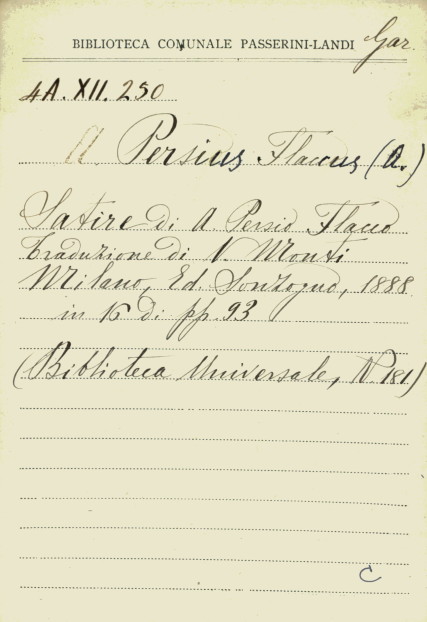 BIBLIOTECA COMUNALE PASSERINI-LANDI Gar.
4A. XII. 250
A. Persius Flaccus (A.)
Satire di A Persio Flacco
traduzione di V. Monti
Milano, Ed. Sonzogno, 1888
in 16 di pp 93
(Biblioteca Universale, N. 181)
C